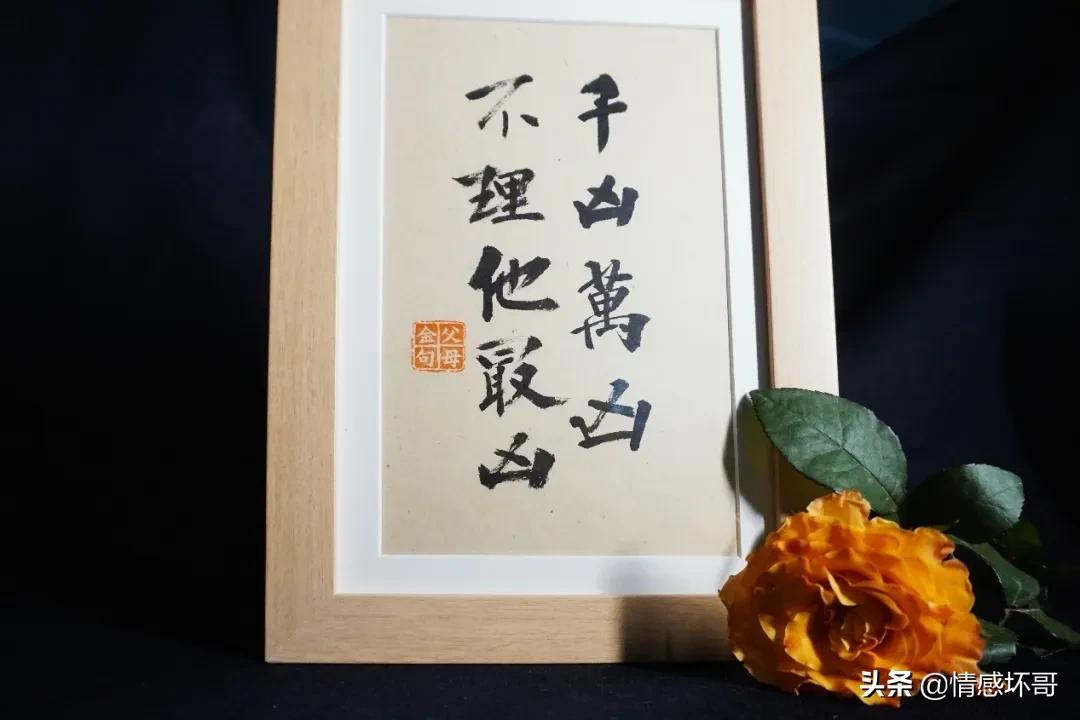 千凶萬凶
不理他最凶
父母
金句
头条 @情感坏哥